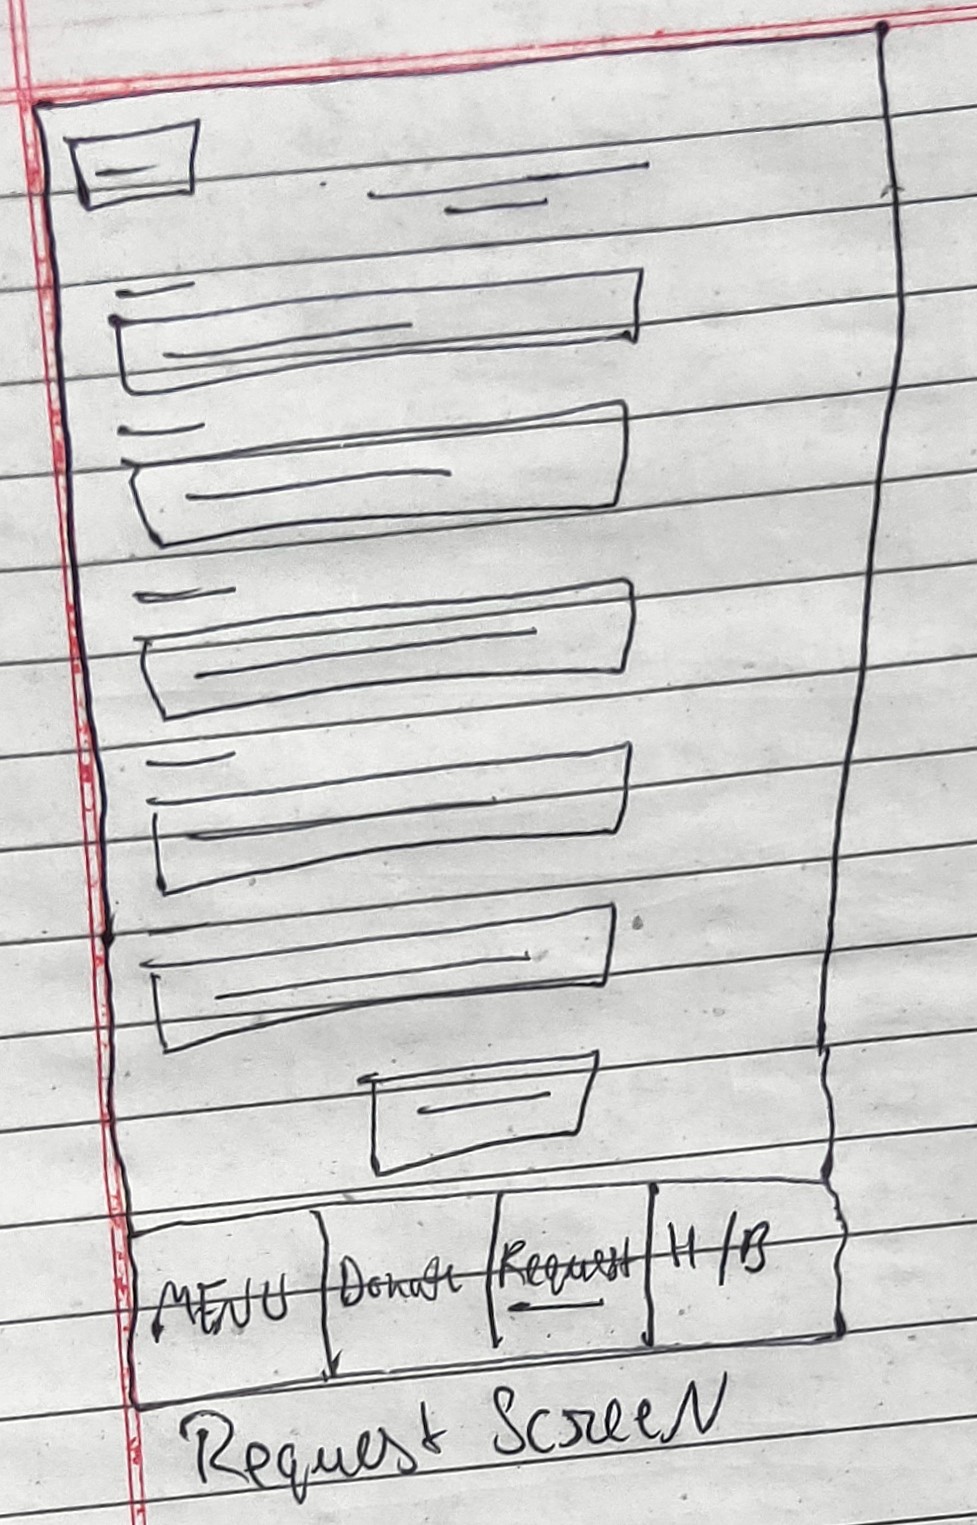 MENU
Donate
Request
H/B
Request Screen